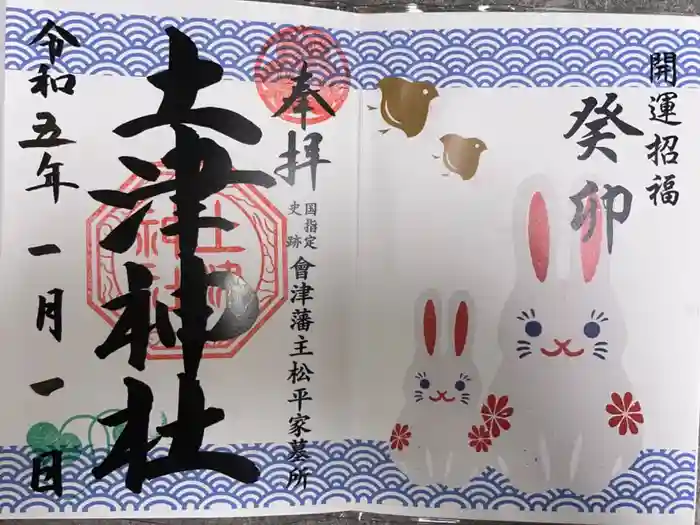 開運招福
癸卯
奉拝
国指定
史跡
會津藩主松平家墓所
土津神社
令和五年一月一日